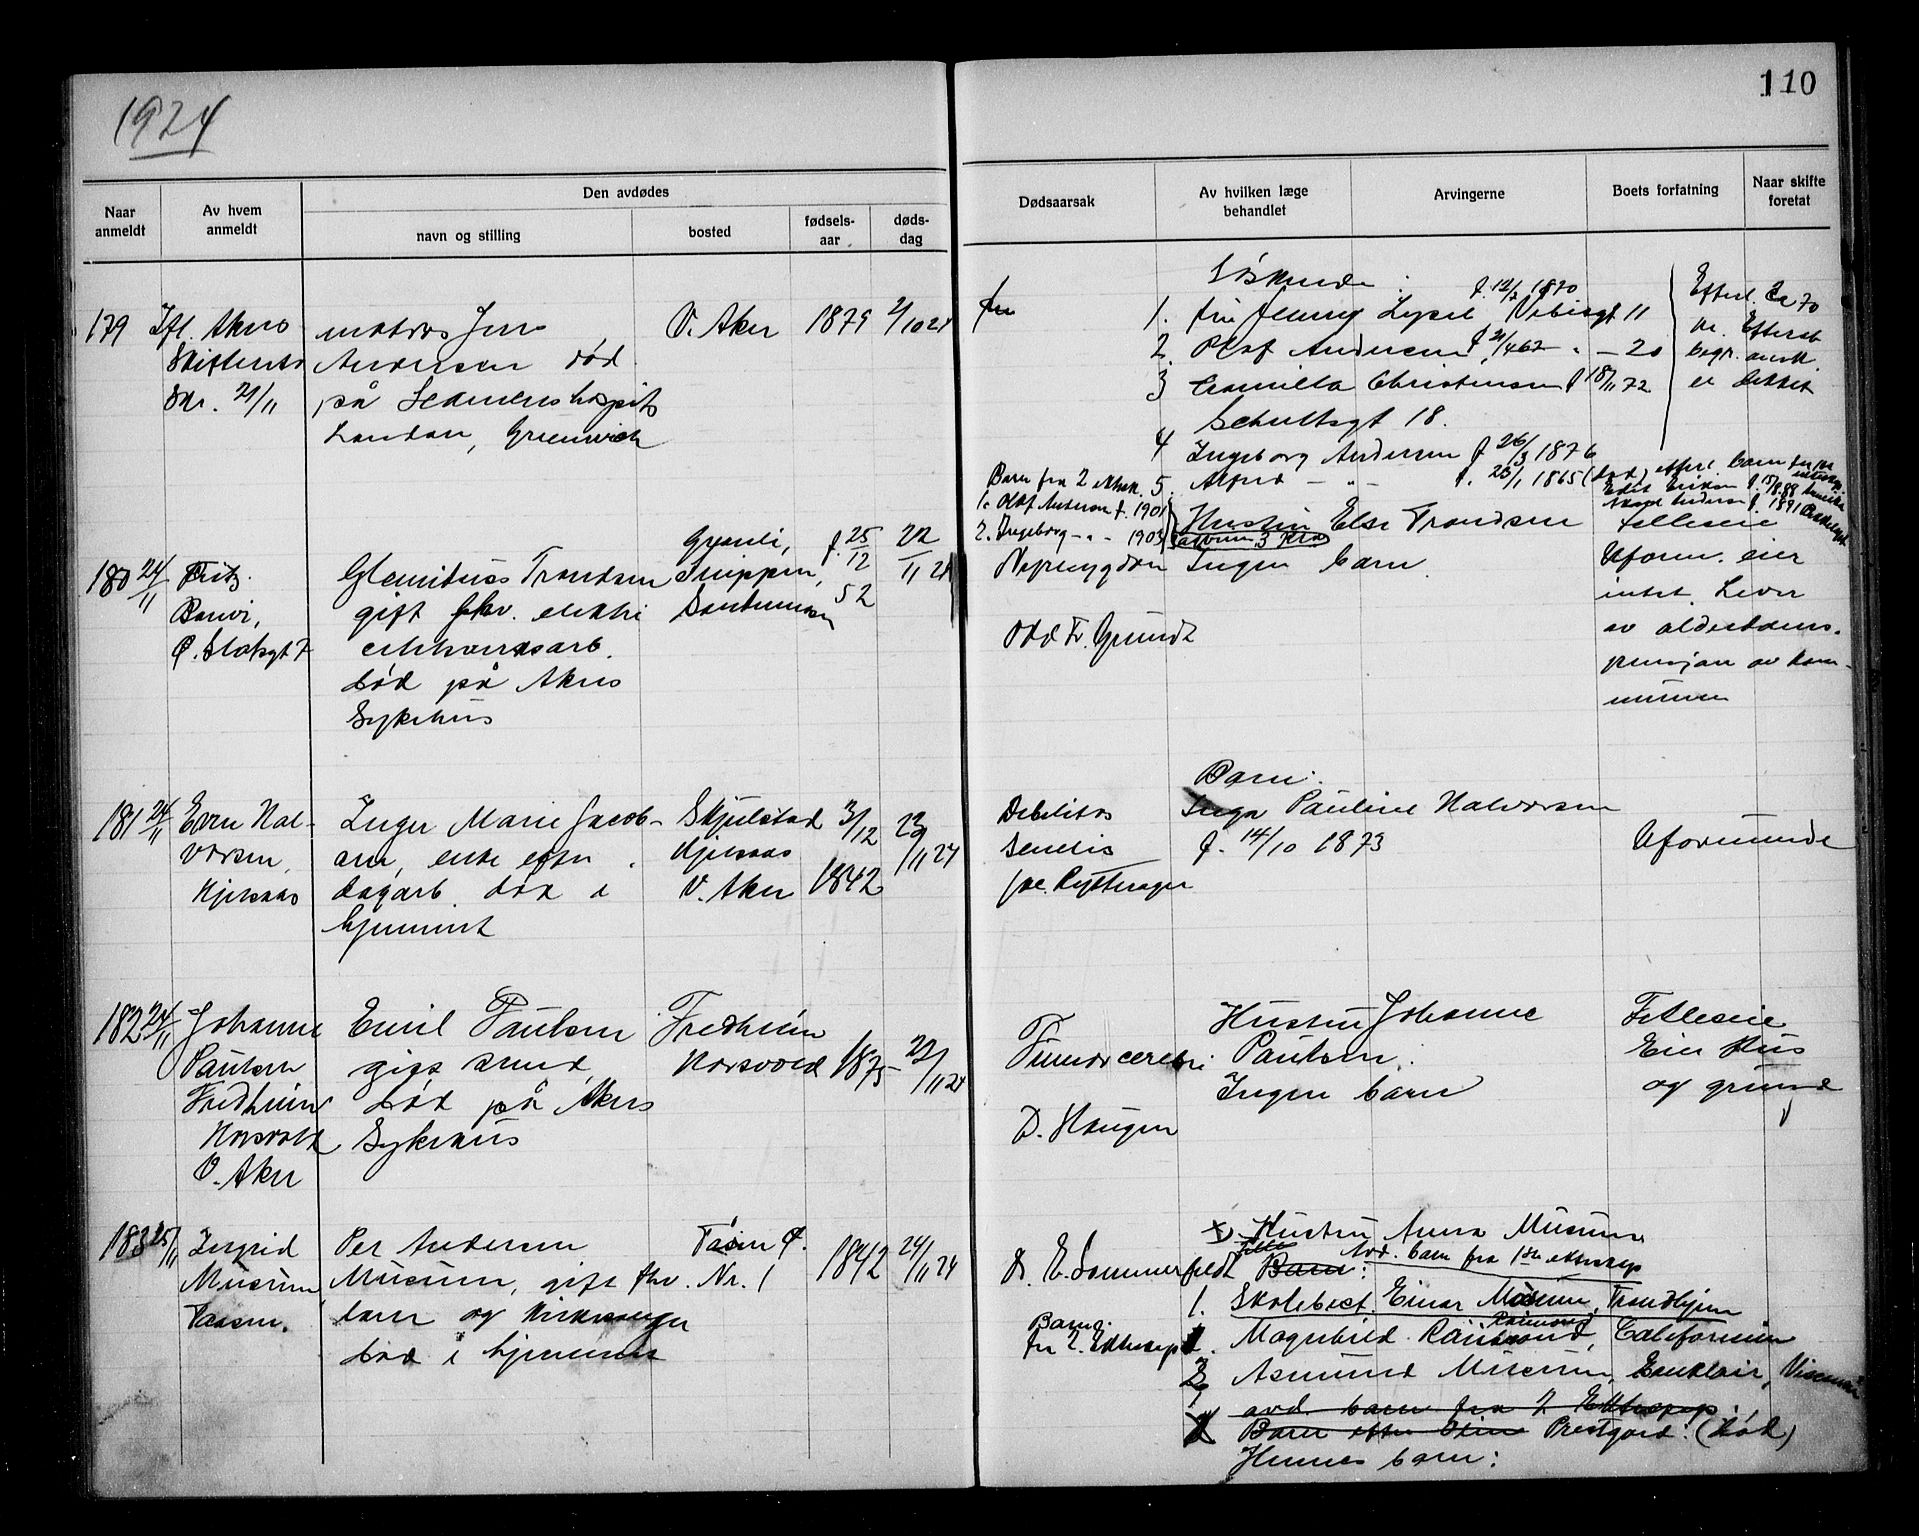 1924
110
Naar anmeldt
Av hvem anmeldt
Den avdødes
navn og stilling
bosted
fødsels-aar
døds-dag
Dødsaarsak
Av hvilken læge behandlet
Arvingerne
Boets forfatning
Naar skifte foretat
179
Ifl. Akers
Skifteretts
Skr. 21/11
matros Jens
Andersen død
på Seamens hospit
London, Greenwich
V. Aker
1879
2/10 24
Søskende:
f. 12/7 1870
1. fru Jenny
2. Olaf Andersen f. 21/4 62 - 20
3 Camilla Christensen f 18/11 72
Schultzgt 18.
4 Ingeborg Andersen f 26/3 1876
5. Alfred - " - f. 23/1 1865 (død) efterl. barn
Efterl. ca 70
kr.
begr.
er dekket
Barn fra 2 ektesk.
1. Olaf Andersen f. 1901
2. Ingeborg - " - 1903
180 24/11
Fritz
P. Slotsgt 7
Trondsen
gift fhv. elektri
citetsverksarb.
død på Akers
Sykehus
Grønli,
f. 25/12
52
22/11 24
Odd Fr. Grundt
Hustru Else Trondsen
Ingen barn
Felleseie
Uform. eier
intet. Lever
av alderdoms-
pensjon av kom-
munen
181 24/11
Even Hal-
vorsen,
Kjelsaas
Inger Marie Jacob-
sen, enke efter
dagarb. død i
hjemmet
Skjulstad
Kjelsaas
V. Aker
3/12
1842
23/11 24
Debilitas
Senilis
Barn:
Inga Pauline Halvorsen
f. 14/10 1873
Uformuende
182 24/11
Johanne
Paulsen
Fredheim
Korsvold
V. Aker
Emil Paulsen
gips
død på Akers
Sykehus
Fredheim
Korsvold
1875
22/11 24
Tumor cerebri
D. Haugen
Hustru Johanne
Paulsen.
Ingen barn
Felleseie
Eier Hus
og grund
183 25/11
Ingrid
Musum
Taasen.
Per Andersen
Musum, gift fhv.
lærer og Kirkesanger
død i hjemmet
Tåsen
Nr. 1
1842
24/11 24
D. E. Sommerfeldt
Hustru Anna Musum
Barn:
Avd. barn fra 1ste ekteskap
1. Skolebest. Einar Musum, Trondhjem
Barn
fra 2. Ekteskap
1. Magnhild Raimond, Californien
2. Asmund Musum,
avd. barn fra 2 Ekteskap.
Barn efter Prestgard. (død)
Hennes barn: